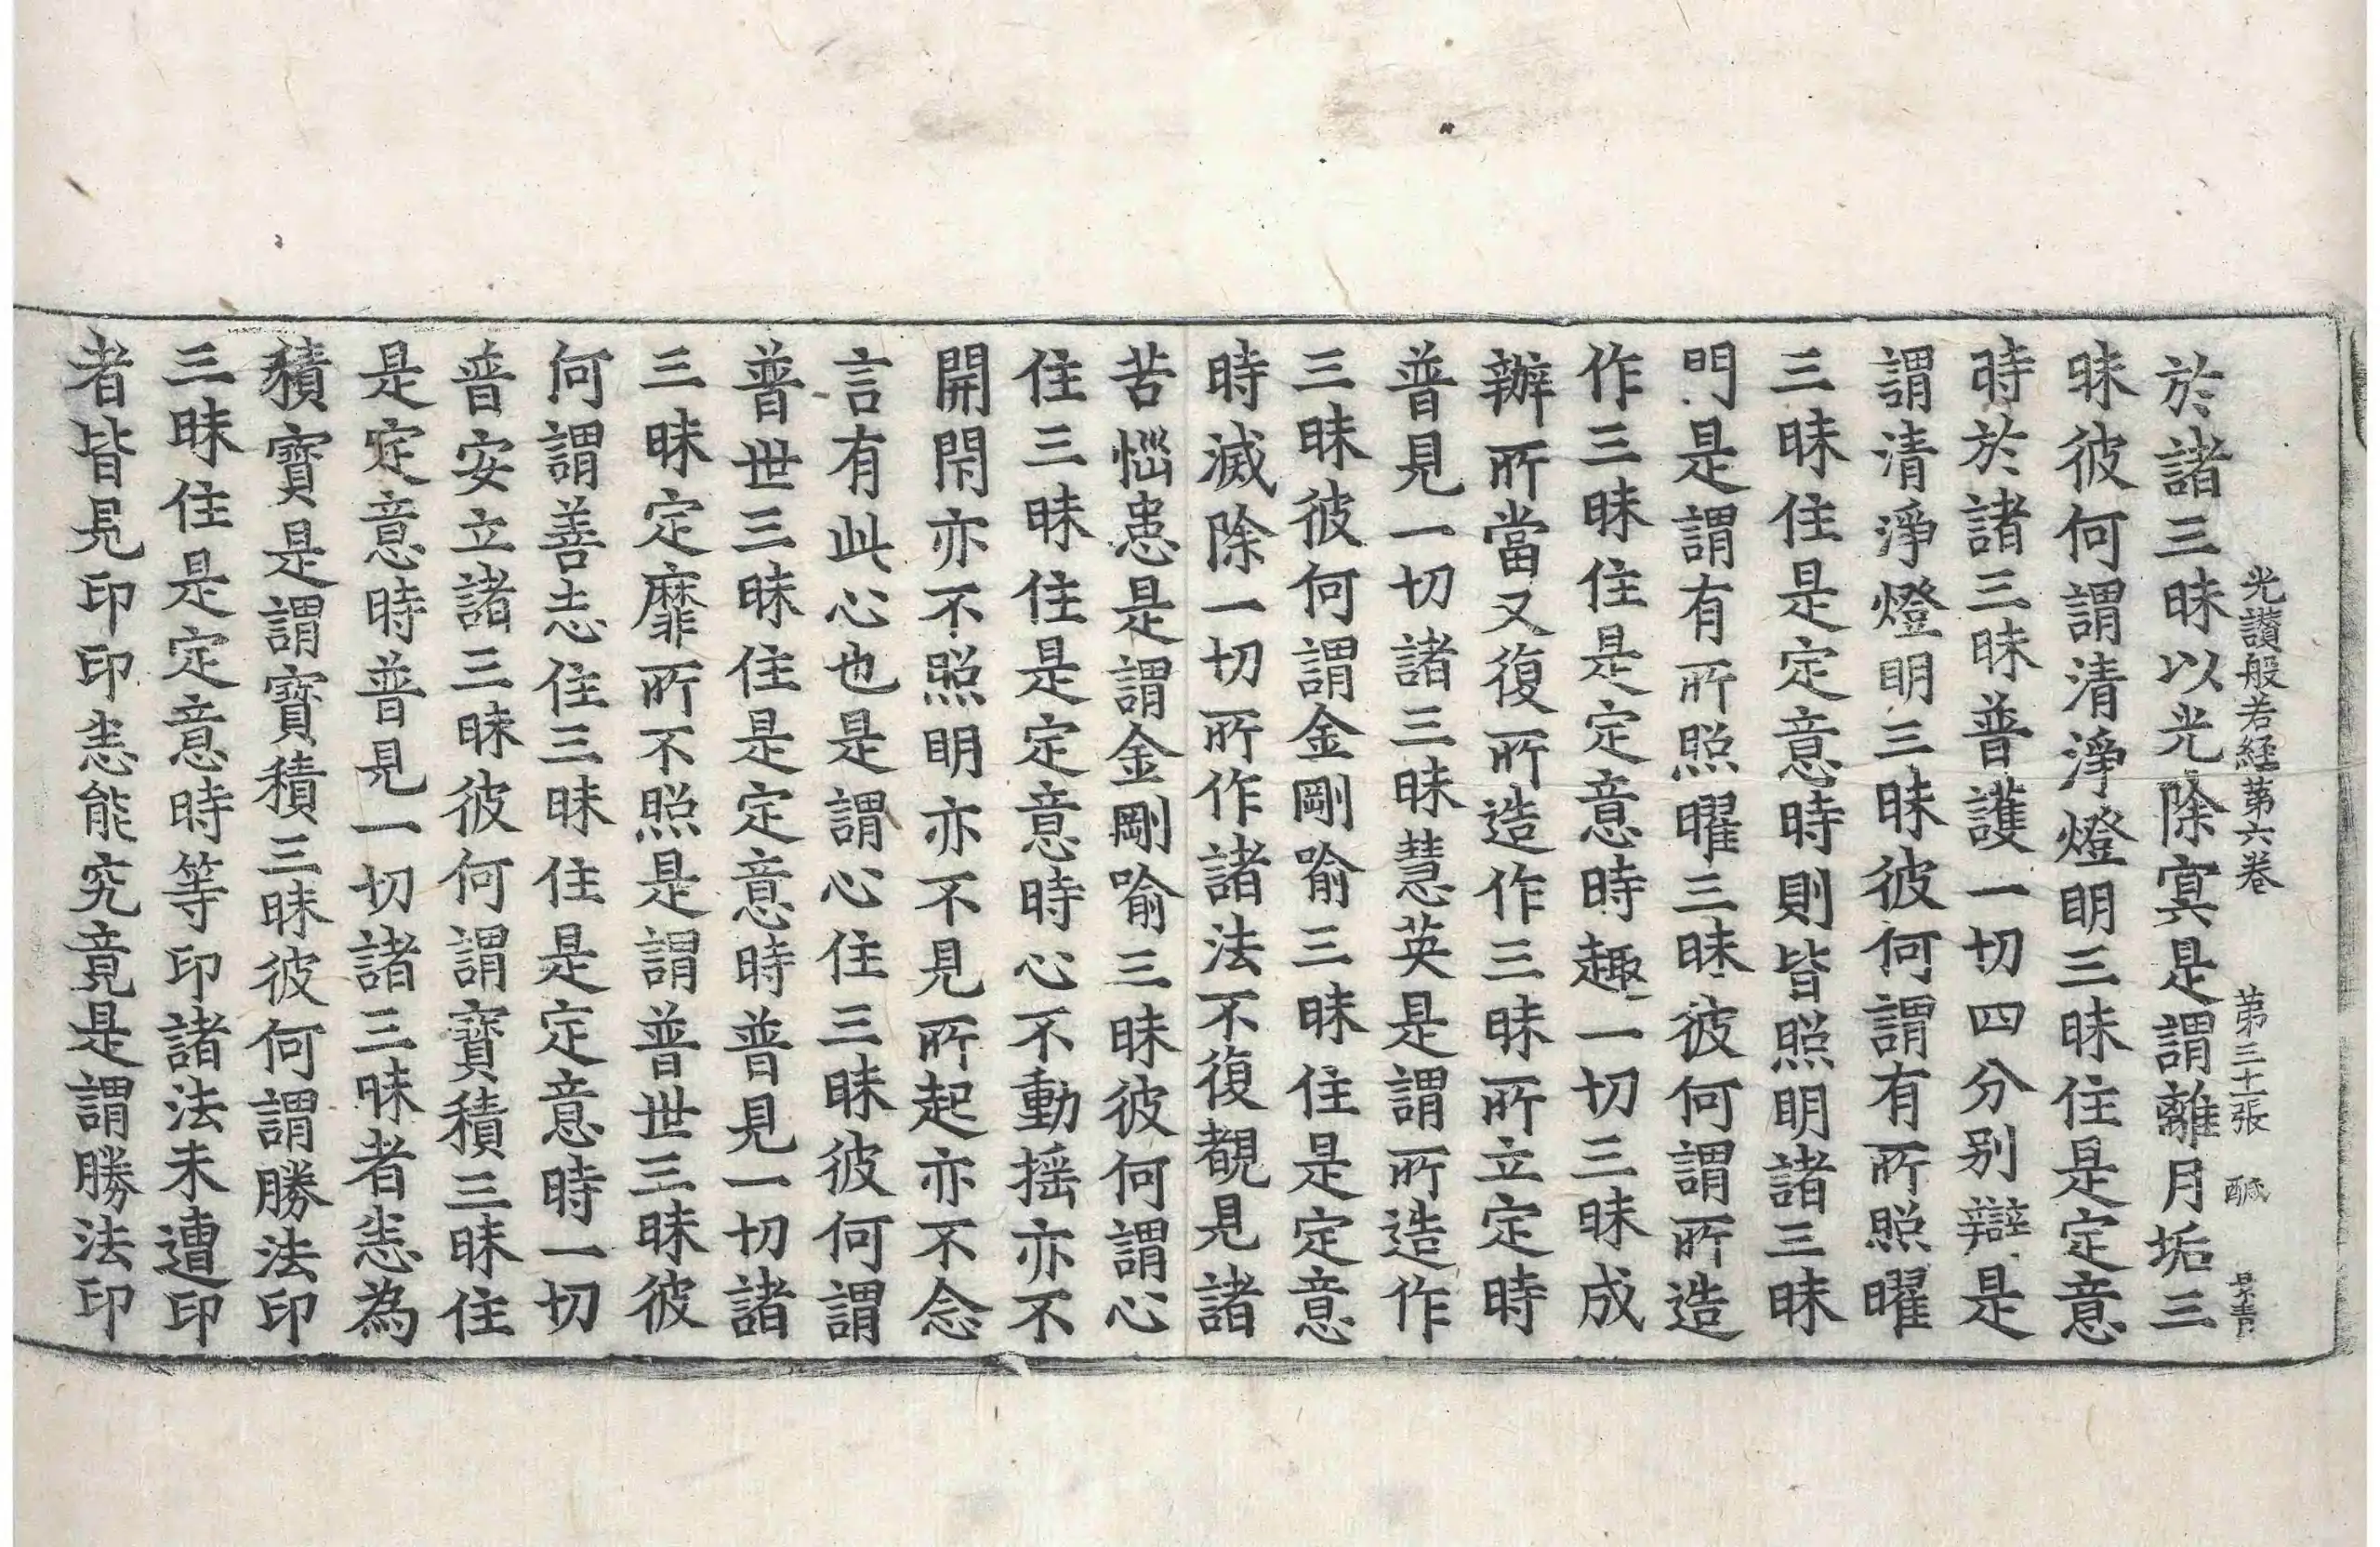 光讃般若経第六卷　第三十二張　醎　景青
於諸三昧以光除冥是謂離月垢三
昧彼何謂清淨燈明三昧住是定意
時於諸三昧普護一切四分別辯是
謂清淨燈明三昧彼何謂有所照曜
三昧住是定意時則皆照明諸三昧
門是謂有所照曜三昧彼何謂所造
作三昧住是定意時趣一切三昧成
辦所當又復所造作三昧所立定時
普見一切諸三昧慧英是謂所造作
三昧彼何謂金剛喻三昧住是定意
時滅除一切所作諸法不復覩見諸
苦惱患是謂金剛喻三昧彼何謂心
住三昧住是定意時心不動揺亦不
開閇亦不照明亦不見所起亦不念
言有此心也是謂心住三昧彼何謂
普世三昧住是定意時普見一切諸
三昧定靡所不照是謂普世三昧彼
何謂善志住三昧住是定意時一切
普安立諸三昧彼何謂寳積三昧住
是定意時普見一切諸三昧者悉為
積寳是謂寳積三昧彼何謂勝法印
三昧住是定意時等印諸法未遭印
者皆見印印悉能究竟是謂勝法印